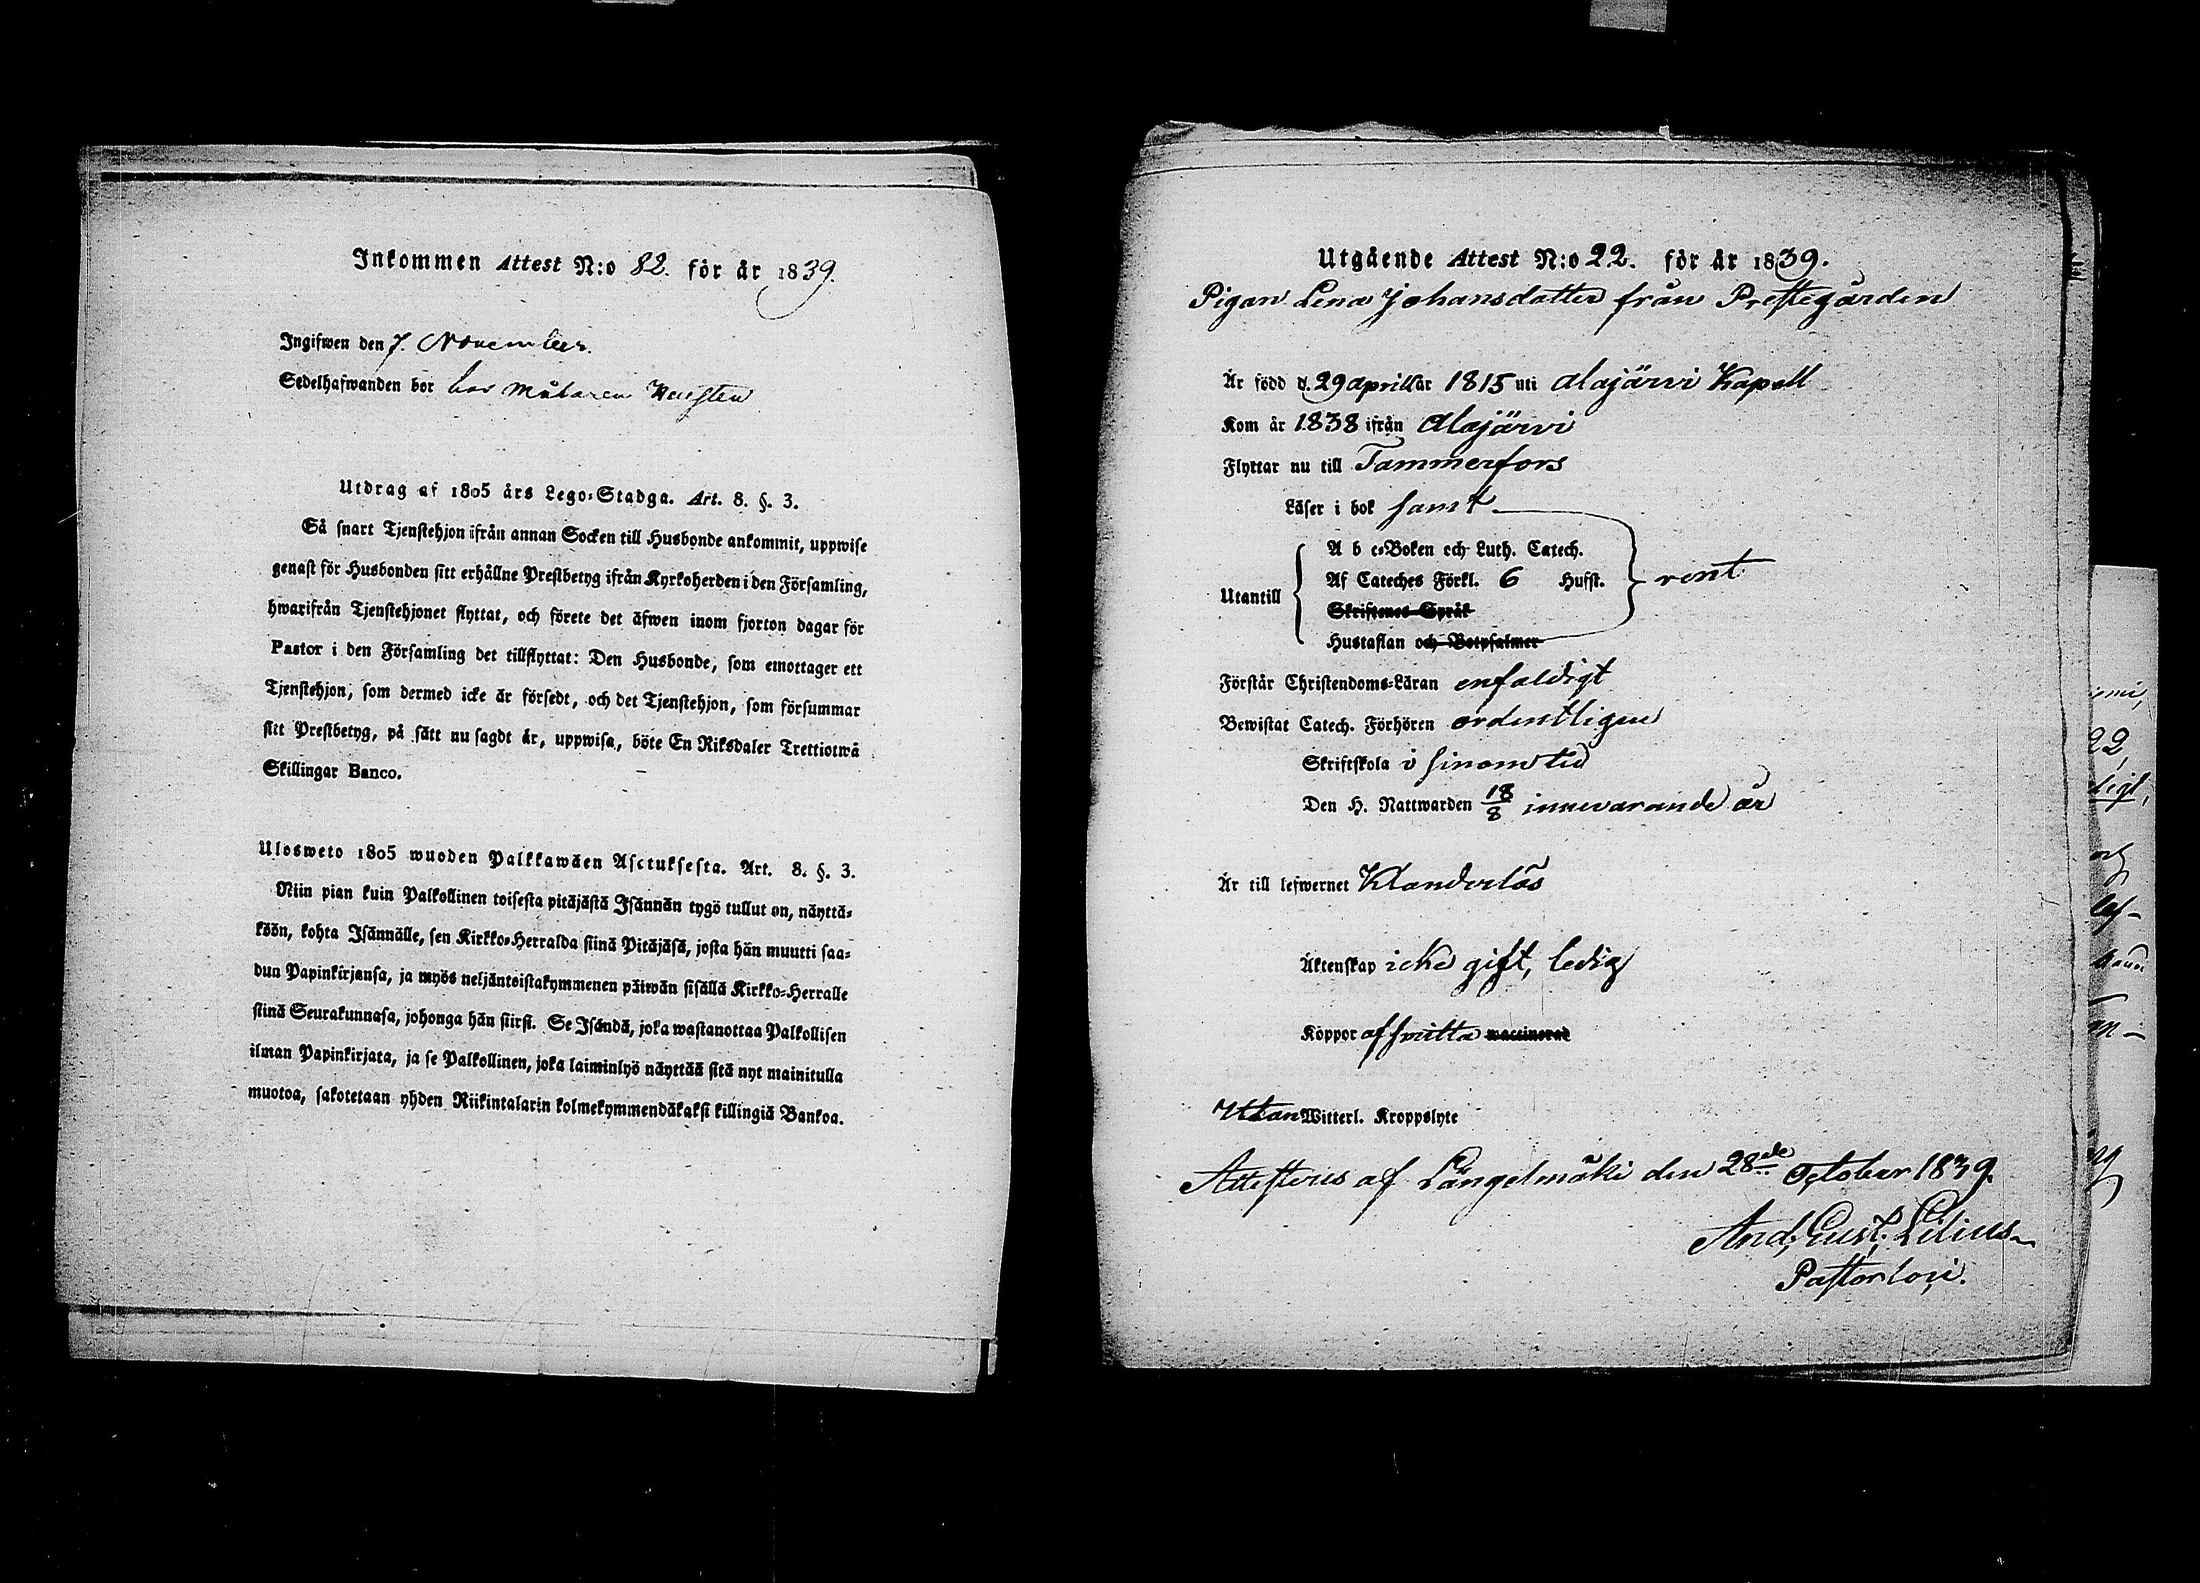 Inkommen Attest N:o 82. för år 1839.
Ingifwen den 7. November.
Sedelhafwanden bor hos Målaren
Utdrag af 1805 års Lego-Stadga. Art. 8. §. 3.
Så snart Tjenstehjon ifrån annan Socken till Husbonde ankommit, uppwise
genast för Husbonden sitt erhållne Prestbetyg ifrån Kyrkoherden i den Församling,
hwarifrån Tjenstehjonet flyttat, och förete det äfwen inom fjorton dagar för
Pastor i den Församling det tillflyttat: Den Husbonde, som emottager ett
Tjenstehjon, som dermed icke är försedt, och det Tjenstehjon, som försummar
sitt Prestbetyg, på sätt nu sagdt är, uppwisa, böte En Riksdaler Trettiotwå
Skillingar Banco.
Ulosweto 1805 wuoden Palkkawäen Asetuksesta. Art. 8. §. 3.
Niin pian kuin Palkollinen toisesta pitäjästä Isännän tygö tullut on, näyttä-
köön, kohta Isännälle, sen Kirkko-Herralda siinä Pitäjäsä, josta hän muutti saa-
dun Papinkirjansa, ja myös neljäntoistakymmenen päiwän sisällä Kirkko-Herralle
siinä Seurakunnasa, johonga hän siirsi. Se Isändä, joka wastanottaa Palkollisen
ilman Papinkirjata, ja se Palkollinen, joka laiminlyö näyttää sitä nyt mainitulla
muotoa, sakotetaan yhden Riikintalarin kolmekymmendäkaksi killingiä Bankoa.
Utgående Attest N:o 22. för år 1839.
Pigan Lena Johansdotter från Prestegården
Är född d. 29 april år 1815 uti Alajärvi Kapell
Kom år 1838 ifrån Alajärvi
Flyttar nu till Tammerfors
Läser i bok samt
A b c-Boken och Luth. Catech.
Af Cateches Förkl. 6 Hufst. rent
Utantill
Skriftenes Språk
Hustaflan och Botpsalmer
Förstår Christendoms-Läran enfaldigt
Bewistat Catech. Förhören ordentligen
Skriftskola i sinom tid
Den H. Nattwarden 18/8 innevarande år
Är till lefwernet Klanderlös
Äktenskap icke gift, ledig
Koppor affritta waccinerad
Utan Witterl. Kroppslyte
Attesteras af Längelmäki den 28de October 1839.
And. Gust. Lilius
Pastor loci.